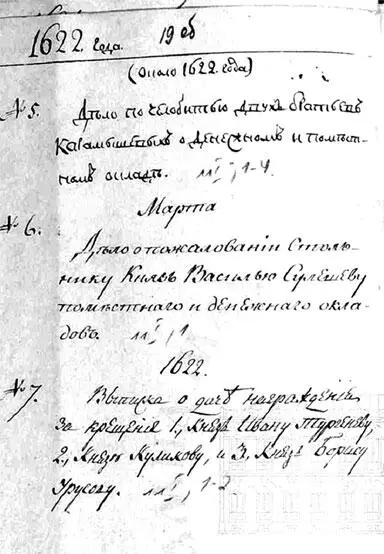 1622 года. 19 об
(около 1622 года)
№ 5. Дѣло по челобитью двухъ братьевъ
Карамышевыхъ о денежномъ и помѣст-
номъ окладѣ. 1-4
Марта
№ 6.
Дѣло о пожалованіи Столь-
нику Князю Василью Сулешеву
помѣстнаго и денежнаго окла-
довъ. 1
1622.
№ 7. Выписка о дачѣ награжденія
за крещеніе 1, Князю Ивану Тургеневу,
2, Князю Куликову, и 3, Князю Борису
Урусову. 1-2